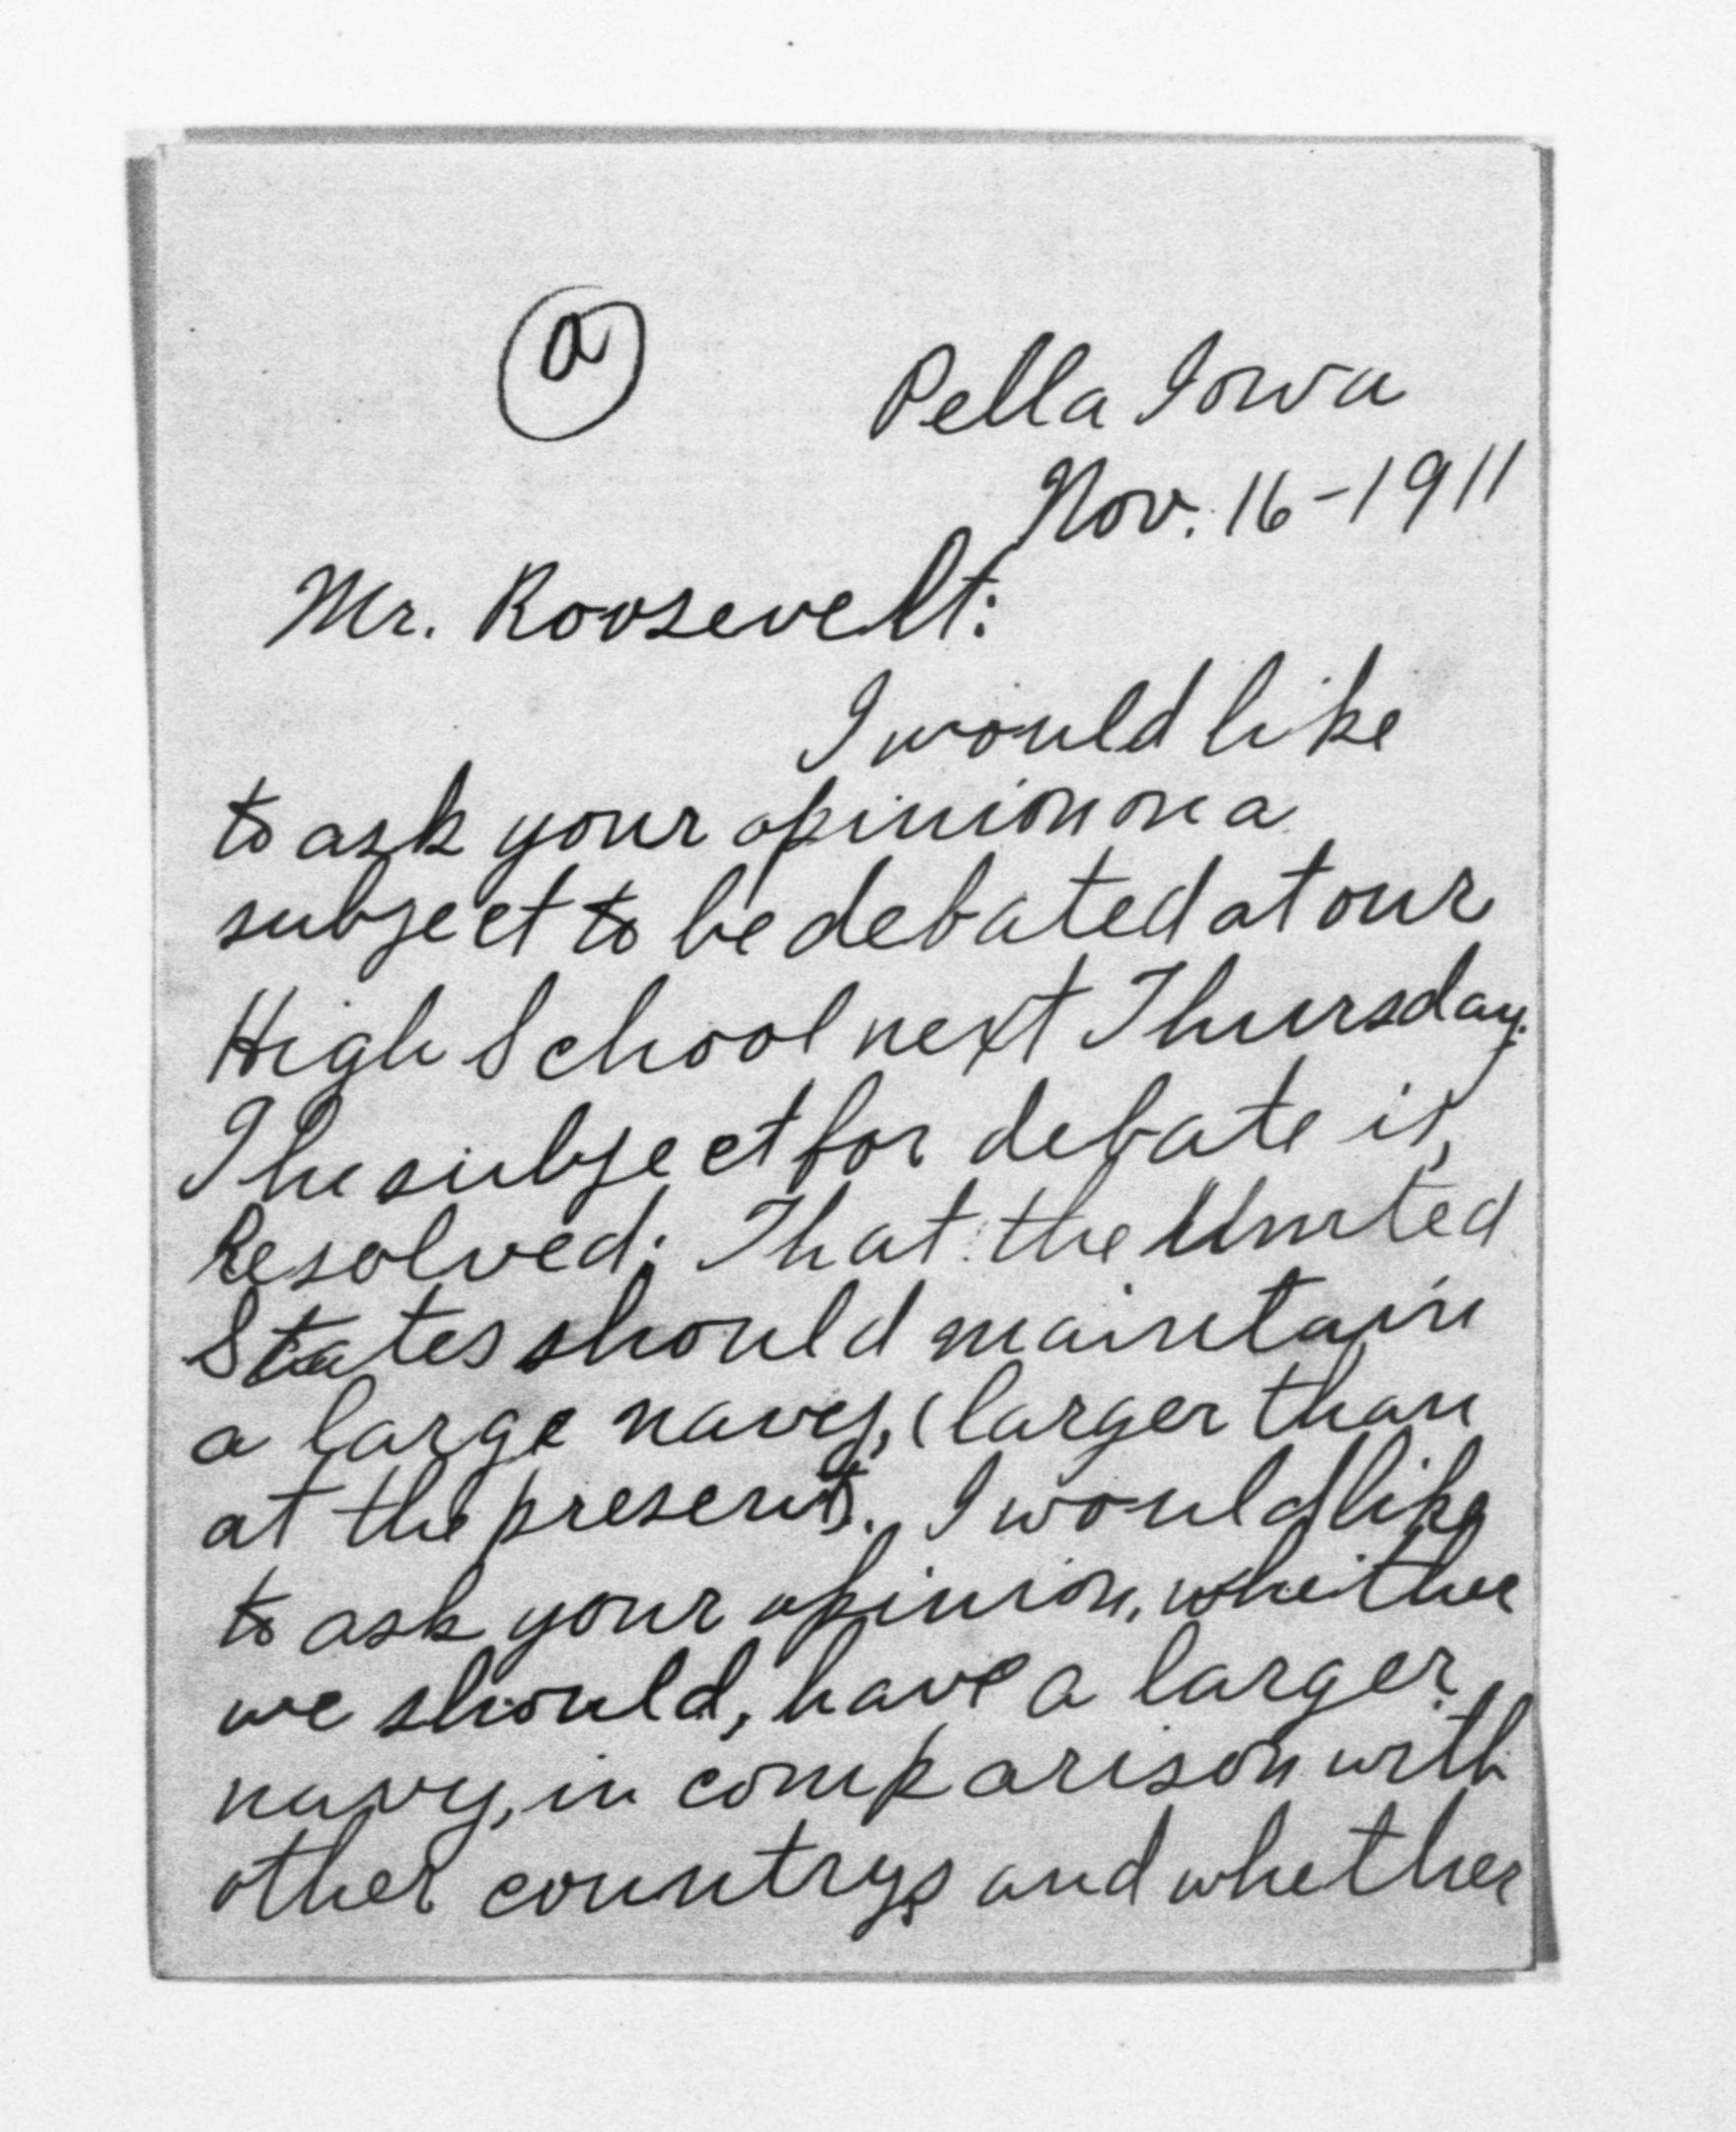 a
Pella Iowa
Nov. 16-1911
Mr. Roosevelt:
I would like
to ask your opinion on a
subject to be debated at our
High School next Thursday.
The subject for debate is,
Resolved: That the United
States should maintain
a large navy, (larger than
at the present). I would like
to ask your opinion, wheither
we should, have a larger
navy, in comparison with
other countrys and whether